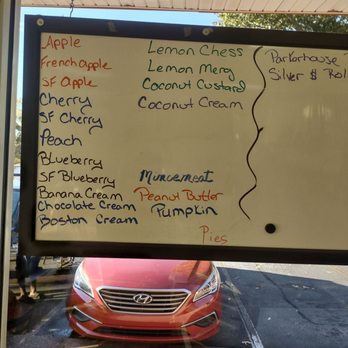 Apple
French Apple
SF Apple
Cherry
SF Cherry
Peach
Blueberry
SF Blueberry
Banana Cream
Chocolate Cream
Boston Cream
Lemon Chess
Lemon Merg
Coconut Custard
Coconut Cream
Muncemeat
Peanut Butter
Pumpkin
Pies
Parkerhouse
Silver $ Rol